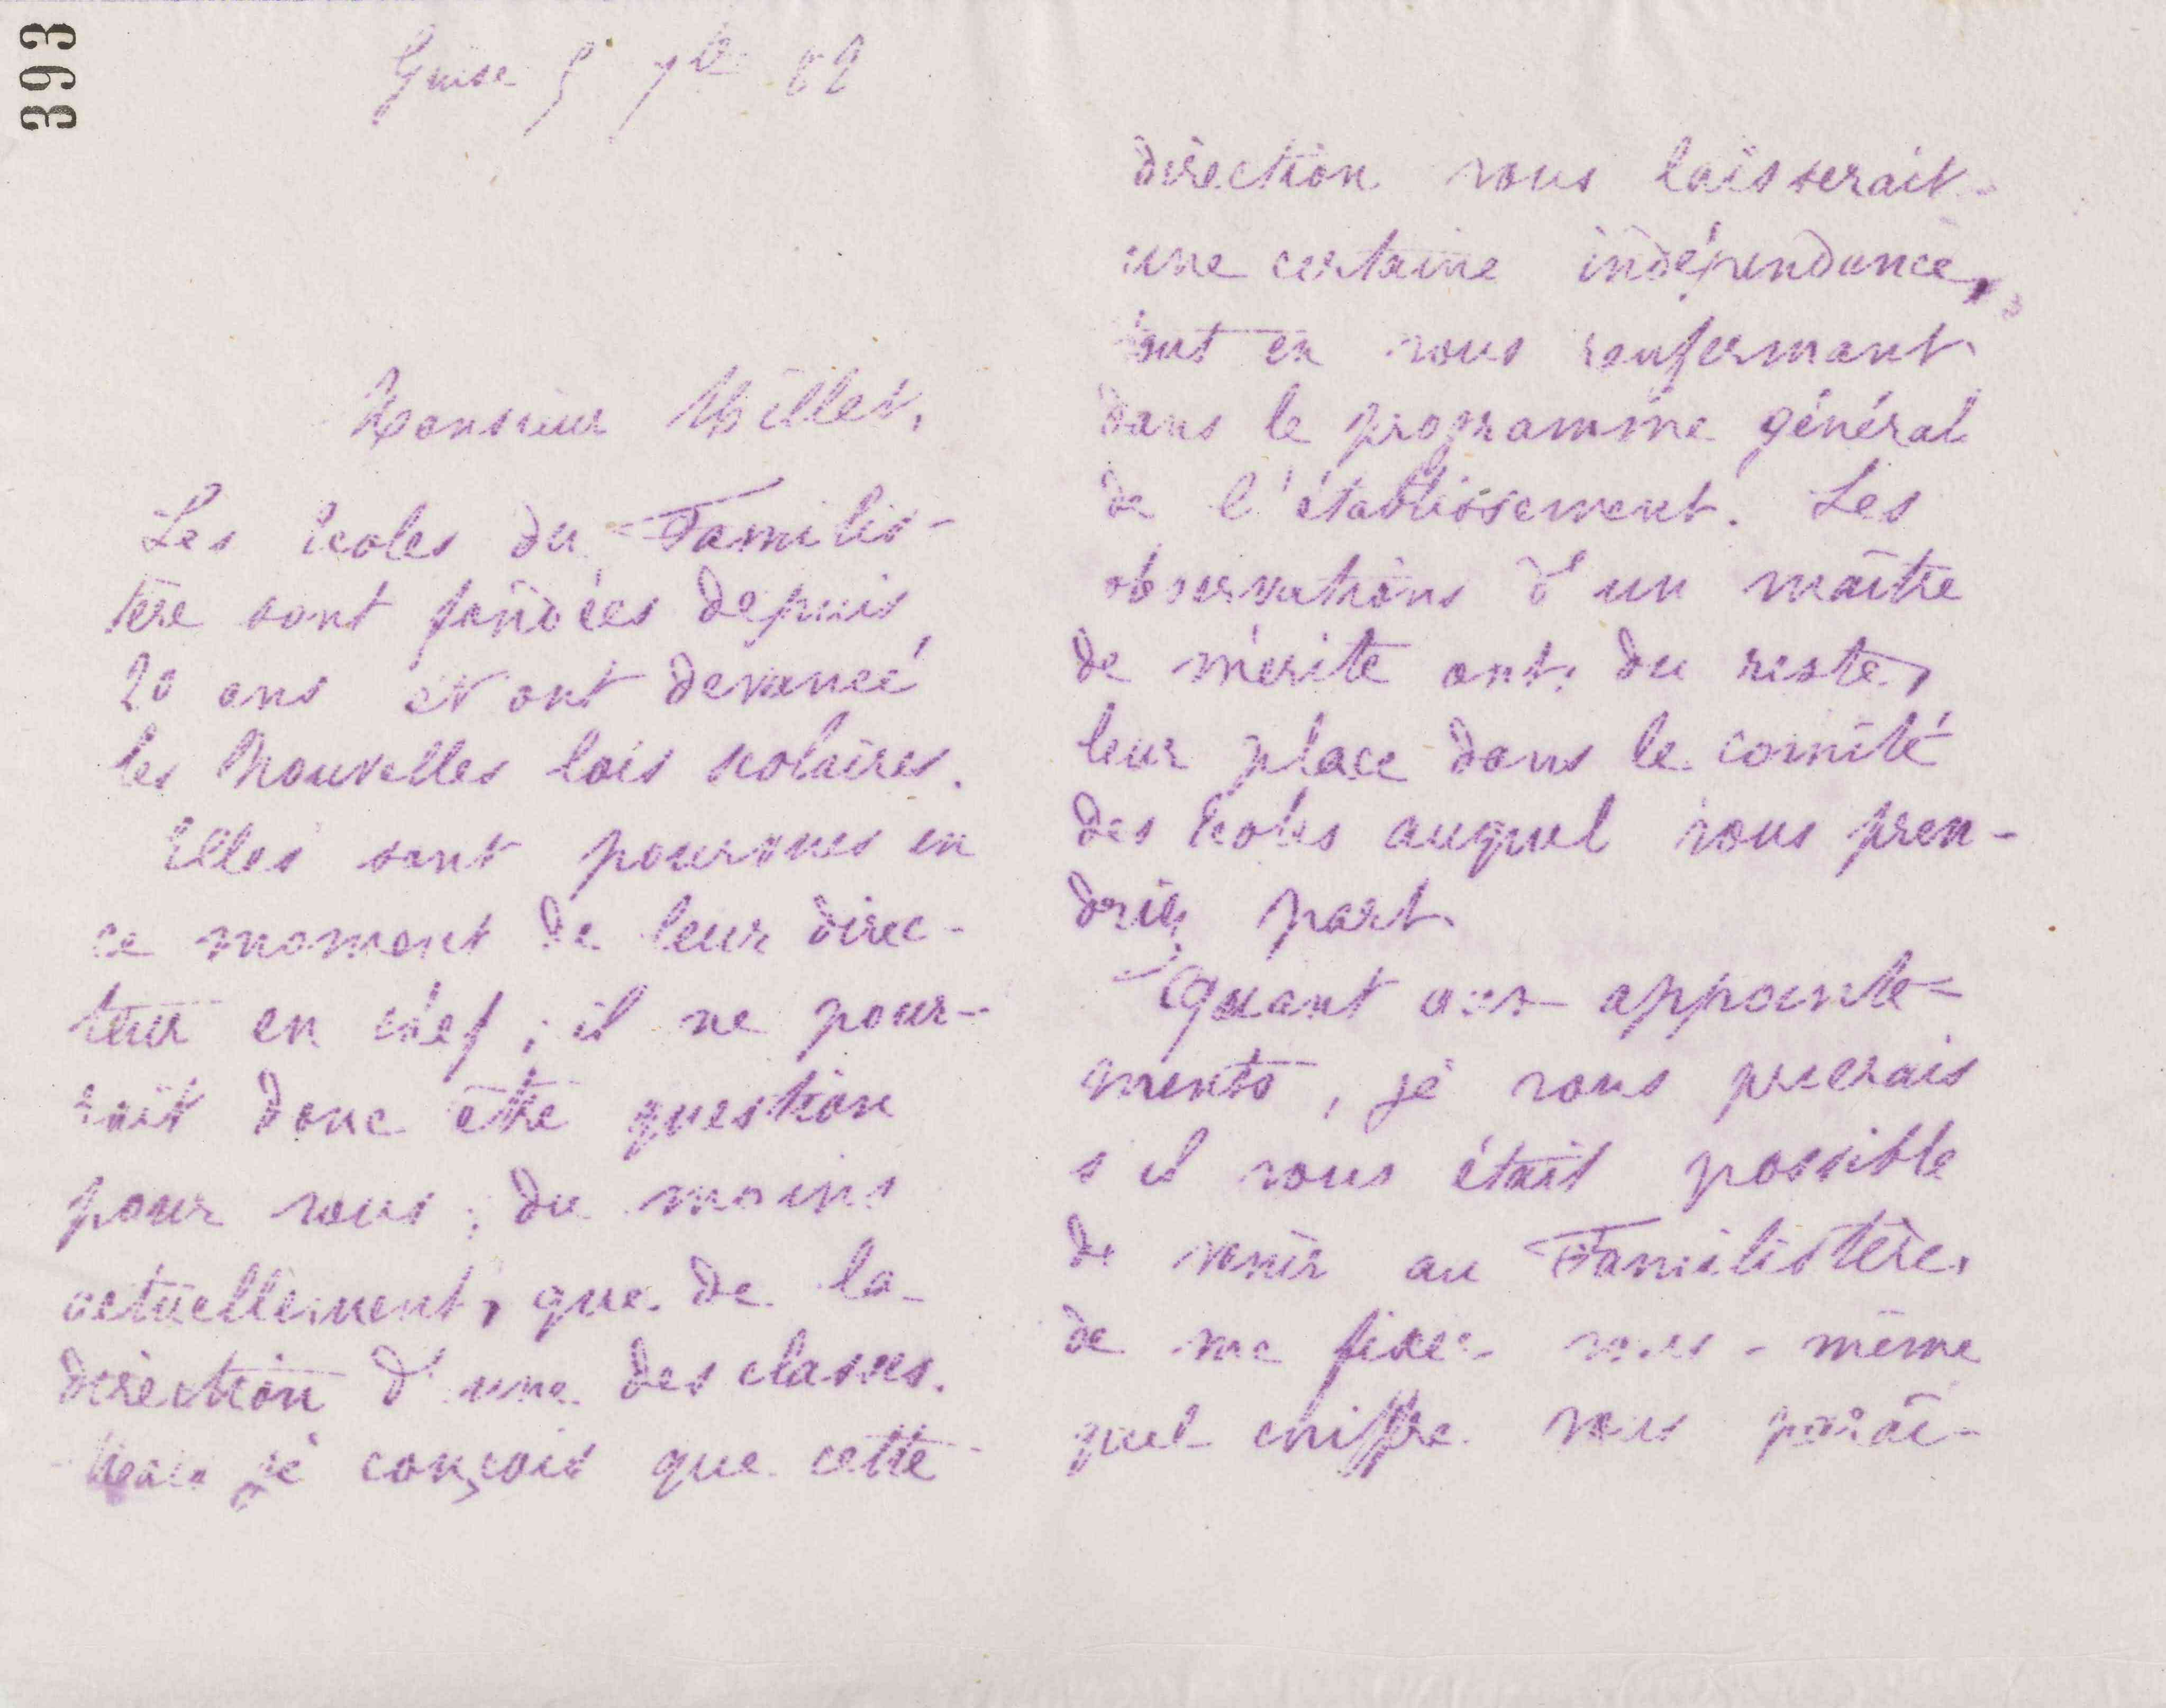 393
Guise 5 7bre 82
Monsieur Millet,
Les écoles du Familis-
tère sont fondées depuis
20 ans et ont devancé
les nouvelles lois scolaires.
Elles sont pourvues en
ce moment de leur direc-
teur en chef ; il ne pour-
rait donc être question
pour vous, du moins
actuellement, que de la
direction d'une des classes.
Mais je conçois que cette
direction vous laisserait
une certaine indépendance,
tout en vous renfermant
dans le programme général
de l'établissement. Les
observations d'un maître
de mérite ont, du reste,
leur place dans le comité
des écoles auquel vous pren-
driez part.
Quant aux appointe-
ments, je vous prierais
s'il vous était possible
de venir au Familistère,
de me fixer vous-même
quel chiffre vous paraî-